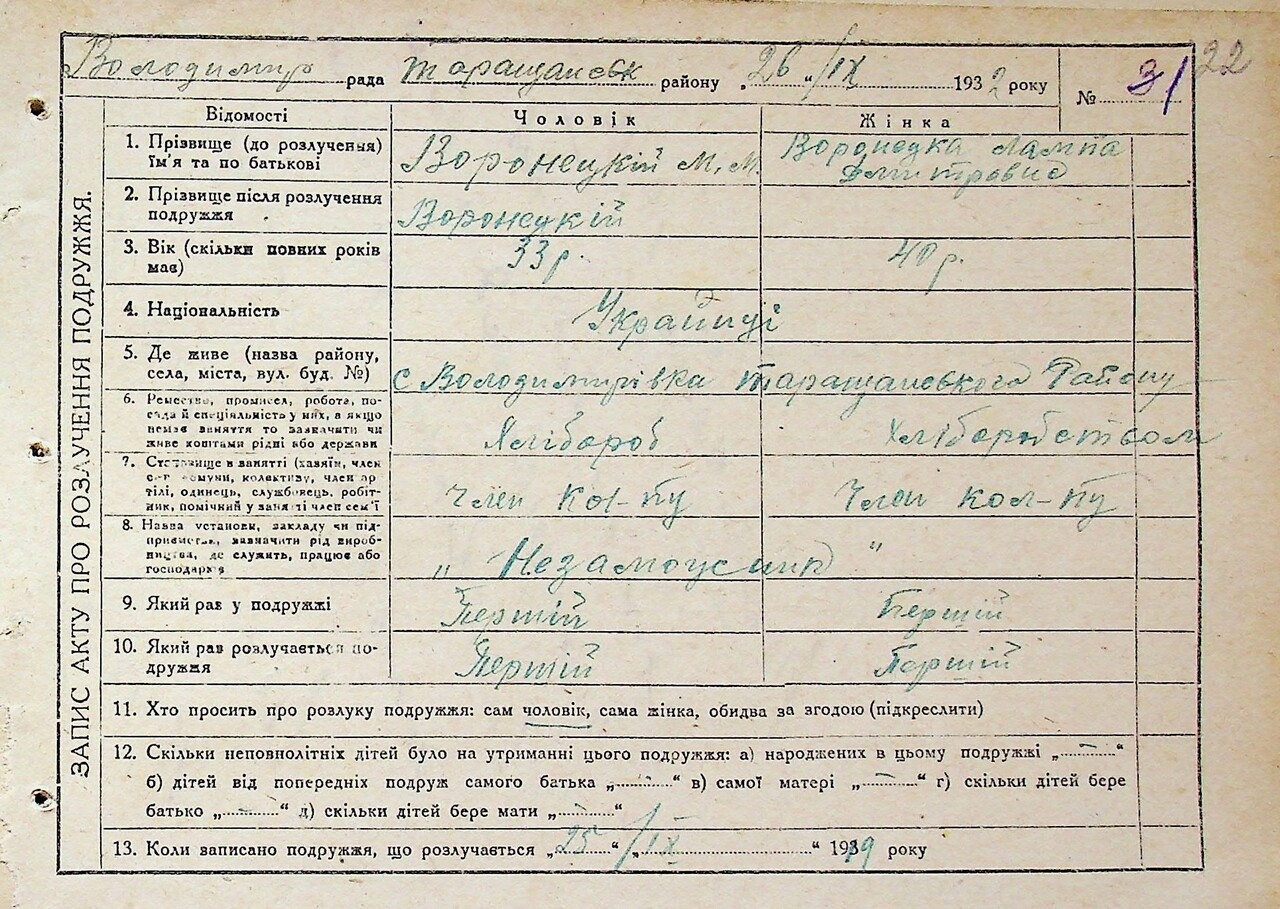 22
Володимир рада таращанськ району „26 "/IX 1932 року № 31
ЗАПИС АКТУ ПРО РОЗЛУЧЕННЯ ПОДРУЖЖЯ.
Відомості Чоловік Жінка
1. Прізвище (до розлучення) Воронецкій М. М. Воронецка
їм'я та по батькові Дмитровно
2. Прізвище після розлучення Воронецкій
подружжя
3. Вік (скільки повних років 33 р. 40 р.
має)
4. Національність Українці
5. Де живе (назва району, с Володимирівка таращанського Району
села, міста, вул. буд. №)
6. Ремество, промисел, робота, по-
сада й спеціяльність у них, а якщо Хлібароб Хліборобством
немає заняття то зазначити чи
живе коштами рідні або держави
7. Становище в занятті (хазяїн, член
с.-г комуни, колективу, член ар
тілі, одинець, службовець, робіт- Член кол-ту Член кол-ту
ник, помічний у занятті член сем'ї
8. Назва установи, закладу чи під-
приємства, зазначити рід вироб-
ництва, де служить, працює або „ Незаможник "
господарює
9. Який раз у подружжі Першій Першій
10. Який раз розлучається по- Першій Першій
дружжя
11. Хто просить про розлуку подружжя: сам чоловік, сама жінка, обидва за згодою (підкреслити)
12. Скільки неповнолітніх дітей було на утриманні цього подружжя: а) народжених в цьому подружжі „ — "
б) дітей від попередніх подруж самого батька „ — " в) самої матері „ — " г) скільки дітей бере
батько „ — " д) скільки дітей бере мати „ — "
13. Коли записано подружжя, що розлучається „25 "/IX " 1919 року